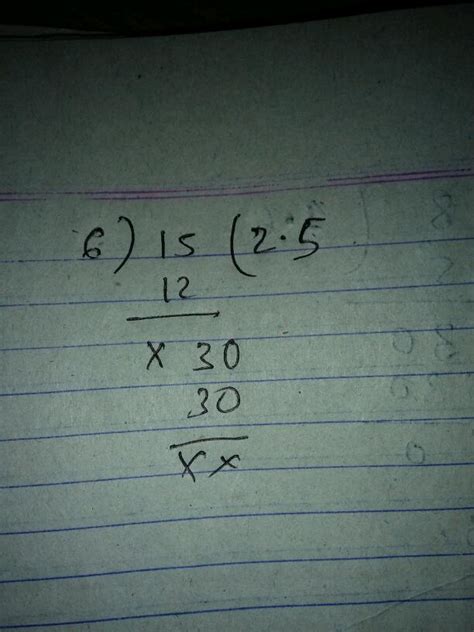 6) 15 (2.5
12
x 30
30
x x